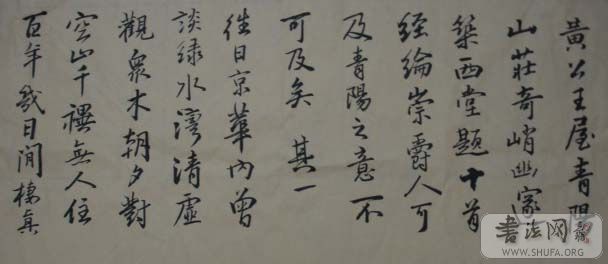 黃公王屋青陽
山莊奇峭幽邃
築西堂題十首
經綸崇爵人可
及青陽之意不
可及矣 其一
往日京華內曾
談緑水灣清虛
觀衆木朝夕對
空山千禩無人住
百年幾日閒棲真
書法网
WWW.SHUFA.ORG